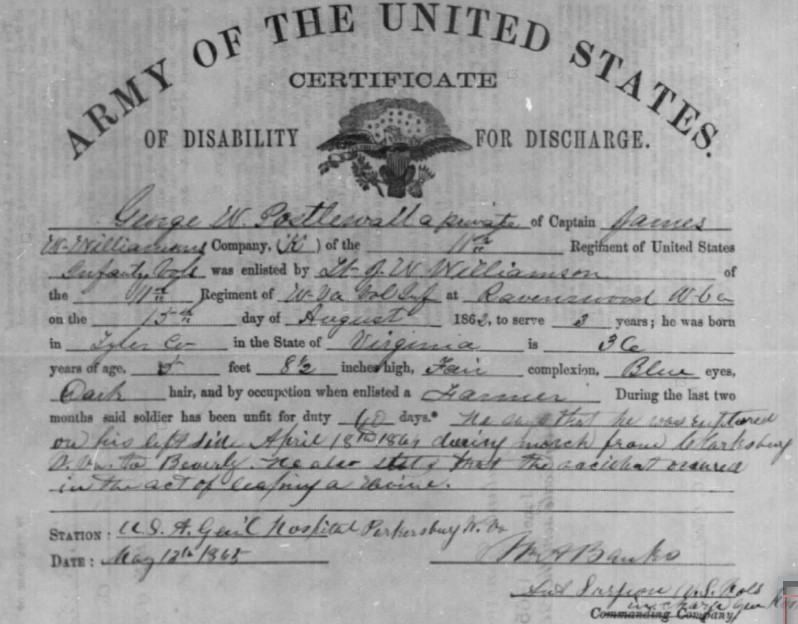 ARMY OF THE UNITED STATES.
CERTIFICATE
OF DISABILITY FOR DISCHARGE.
George W. Postlewait a private of Captain James
W. Williamsons Company, (K) of the 11th Regiment of United States
Infantry Vols was enlisted by Lt. J. W. Williamson of
the 11th Regiment of W. Va Vol Inf at Ravenswood W Va
on the 15th day of August 1862, to serve 3 years; he was born
in Tyler Co in the State of Virginia is 36
years of age, 5 feet 8 1/2 inches high, Fair complexion, Blue eyes,
Dark hair, and by occupation when enlisted a Farmer During the last two
months said soldier has been unfit for duty 60 days.* He says that he was ruptured
on his left side April 18th 1864 during march from Clarksburg
to Beverly. He also states that the accident occured
in the act of leaping a
STATION: U.S.A. Gen'l Hospital Parkersburg W. Va
DATE: May 12th 1865 Wm H Banks
Surgeon U.S. Vols
in charge Gen Hos
Commanding Company